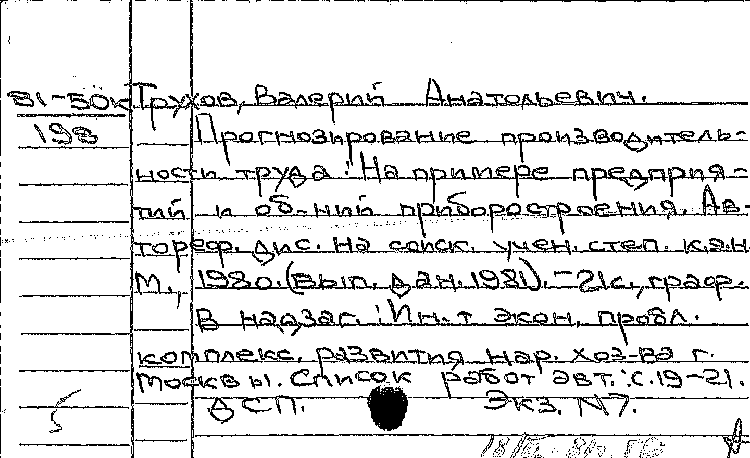 81-50к Трухов, Валерий Анатольевич.
198 Прогнозирование производитель-
ности труда : На примере предприя-
тий и об-ний приборостроения. Ав-
тореф. дис. на соиск. учен. степ. к.э.н.
М., 1980. (вып. дан. 1981). -21с., граф.
В надзаг.: Ин-т экон. пробл.
комплекс. развития нар. хоз-ва г.
Москвы. Список работ авт.: с.19-21.
ДСП. Экз. N7.